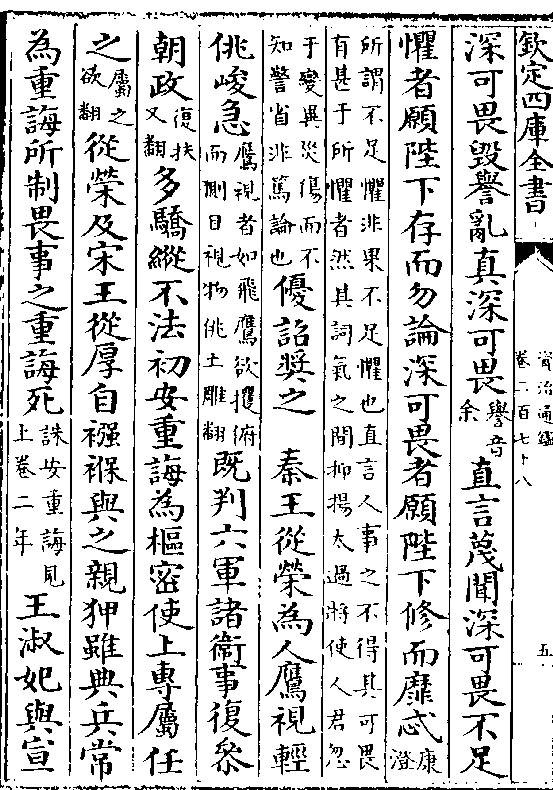 欽定四庫全書
資治通鑑
卷二百七十八
五
深可畏毀譽亂真深可畏譽音余直言蔑聞深可畏不足
懼者願陛下存而勿論深可畏者願陛下修而靡忒康澄
所謂不足懼非果不足懼也直言人事之不得其可畏
有甚于所懼者然其詞氣之間抑揚太過將使人君忽
于變異災傷而不知警省非篤論也優詔奬之 秦王從榮為人鷹視輕
佻峻急鷹視者如飛鷹欲攫俯而側目視物佻土雕翻既判六軍諸衛事復參
朝政復扶又翻多驕縱不法初安重誨為樞密使上專屬任
之屬之欲翻從榮及宋王從厚自襁褓與之親狎雖典兵常
為重誨所制畏事之重誨死誅安重誨見上卷二年王淑妃與宣